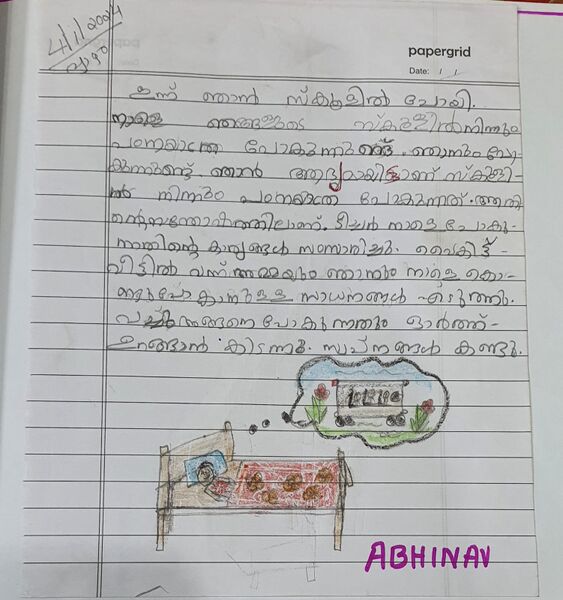 4/1/2024
വ്യാഴം
papergrid
Date: / /
ഇന്ന് ഞാൻ സ്കൂളിൽ പോയി.
നാളെ ഞങ്ങളുടെ സ്കൂളിൽനിന്നും
പഠനയാത്ര പോകുന്നുണ്ട്. ഞാനും പോ-
കുന്നുണ്ട്. ഞാൻ ആദ്യമായിട്ടാണ് സ്കൂളി-
ൽ നിന്നും പഠനയാത്ര പോകുന്നത്. അതി
ന്റെ സന്തോഷത്തിലാണ്. ടീച്ചർ നാളെ പോകു-
ന്നതിന്റെ കാര്യങ്ങൾ സംസാരിച്ചു. വൈകിട്ട്
വീട്ടിൽ വന്ന് അമ്മയും ഞാനും നാളെ കൊ-
ണ്ടുപോകാനുള്ള സാധനങ്ങൾ എടുത്തു.
അങ്ങനെ പോകുന്നതും ഓർത്ത്
ഉറങ്ങാൻ കിടന്നു. സ്വപ്നങ്ങൾ കണ്ടു.
ABHINAV